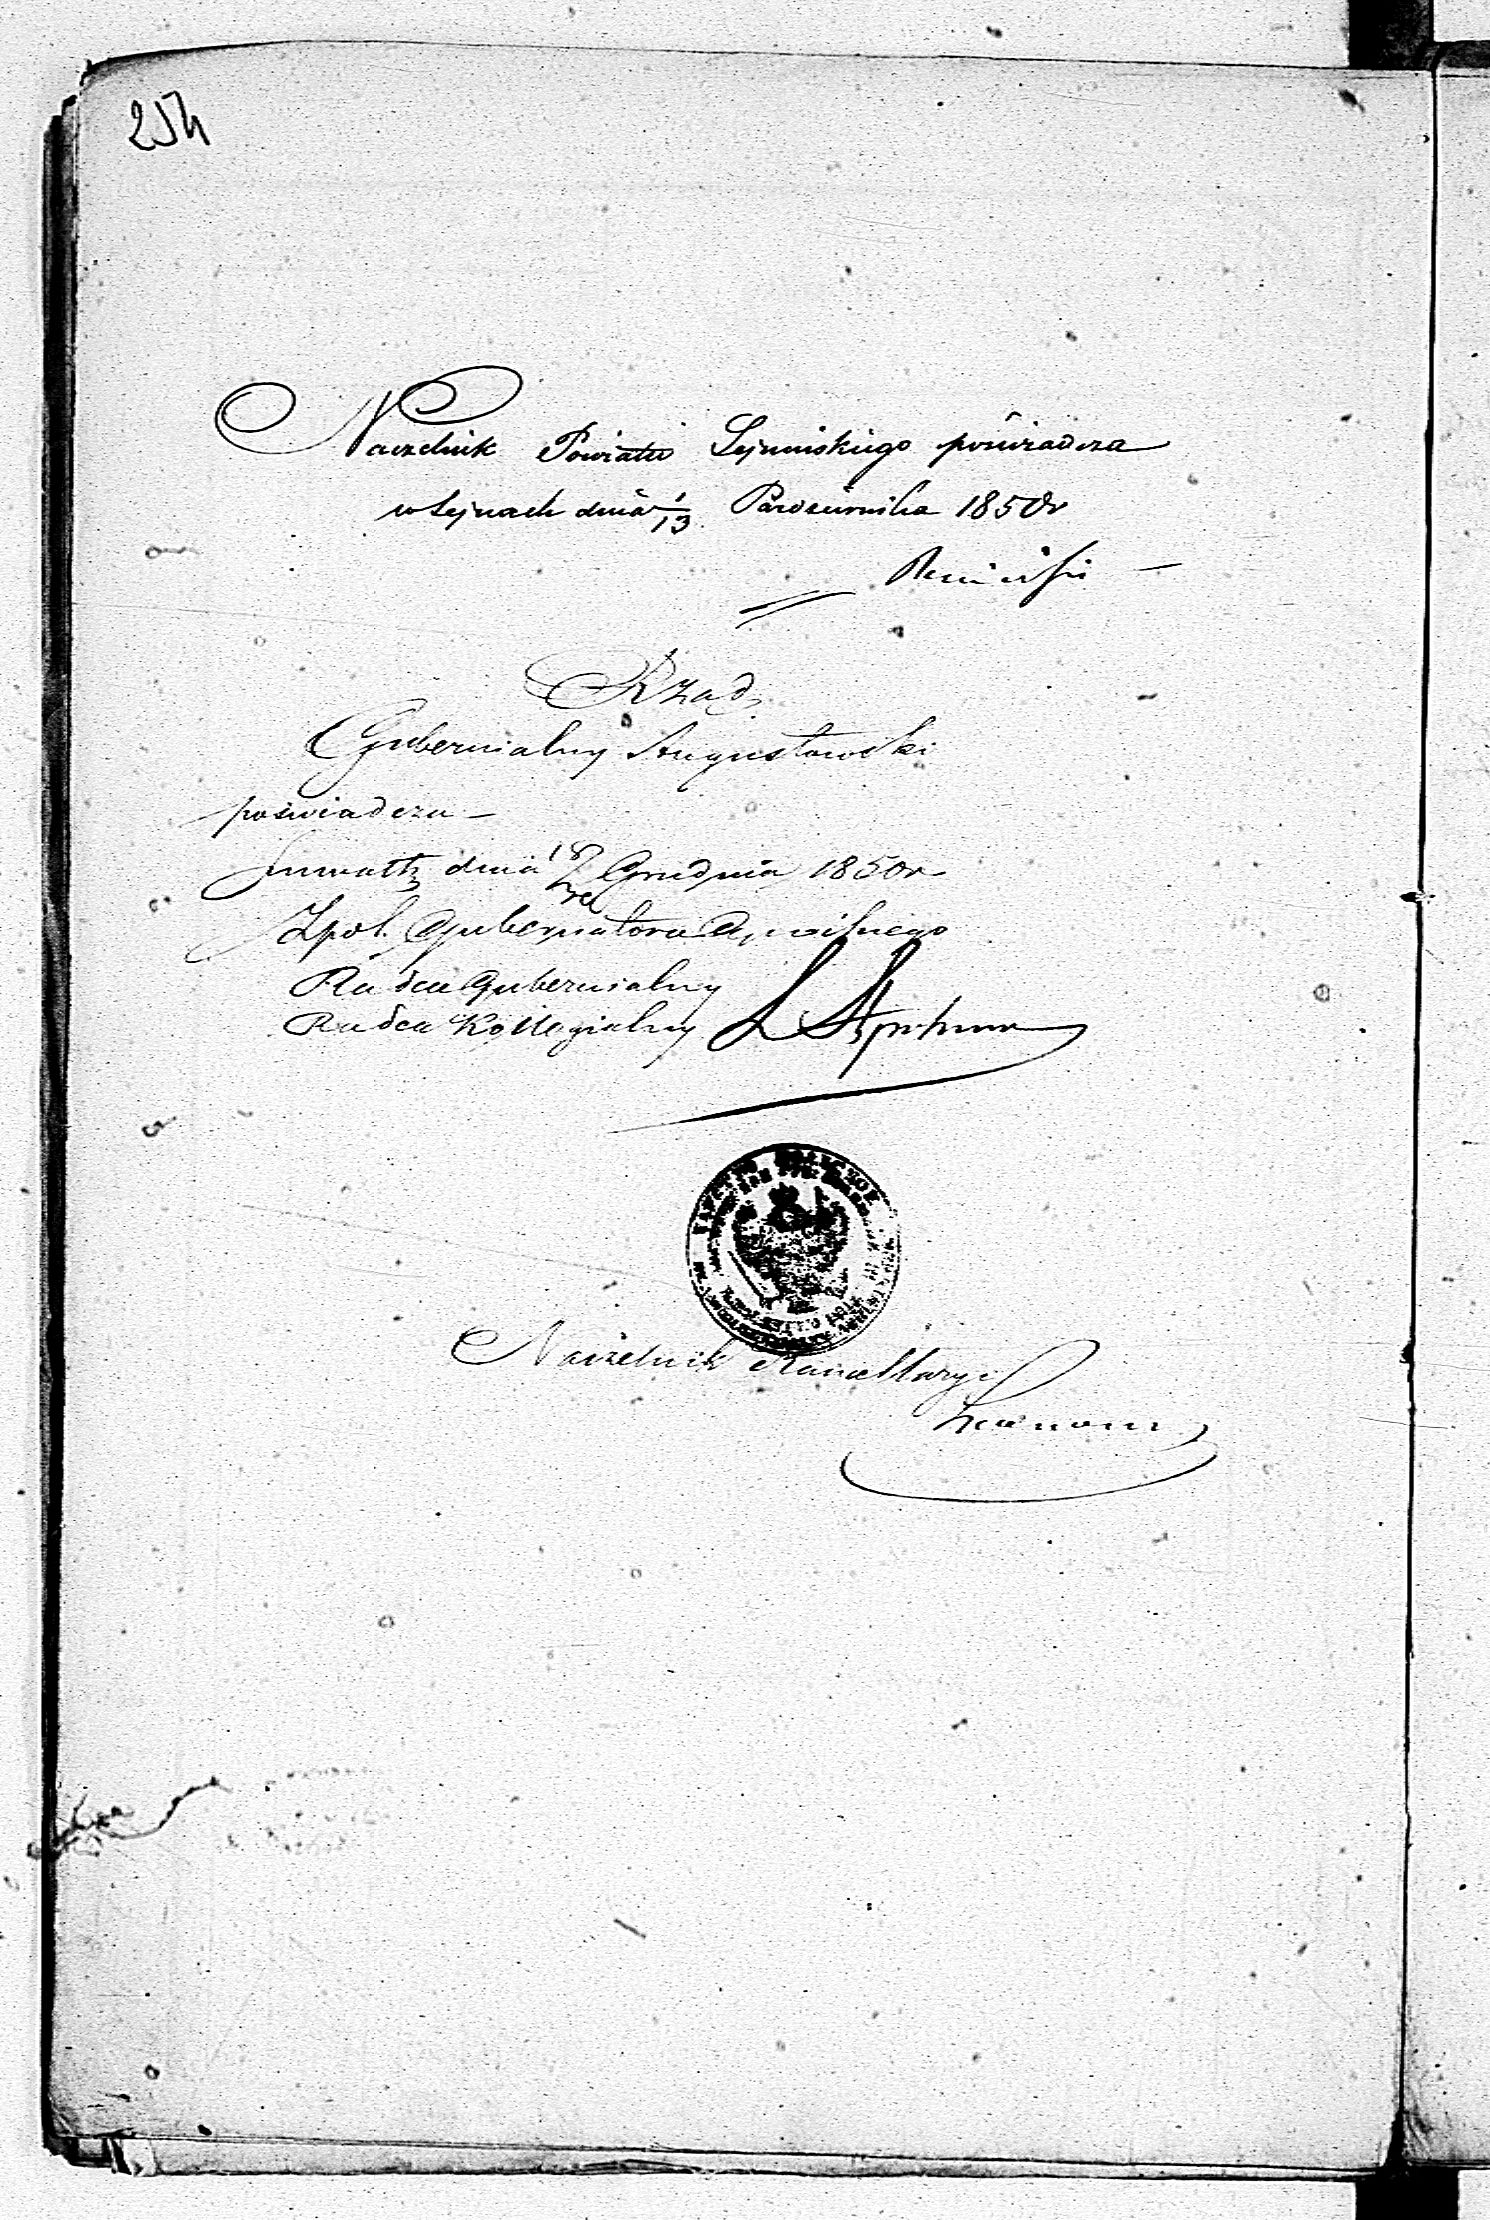 254
Naczelnik Powiatu Sejneńskiego poświadcza
w Sejnach dnia 1/13 Października 1850r
Rząd
Gubernialny Augustowski
poświadcza
Suwałki dnia Grudnia 1850r
Zpol. Gubernatora Cywilnego
Radca Gubernialny
Radca Kollegialny
ЦАРСТВО ПОЛЬСКОЕ
Naczelnik Kancellaryi